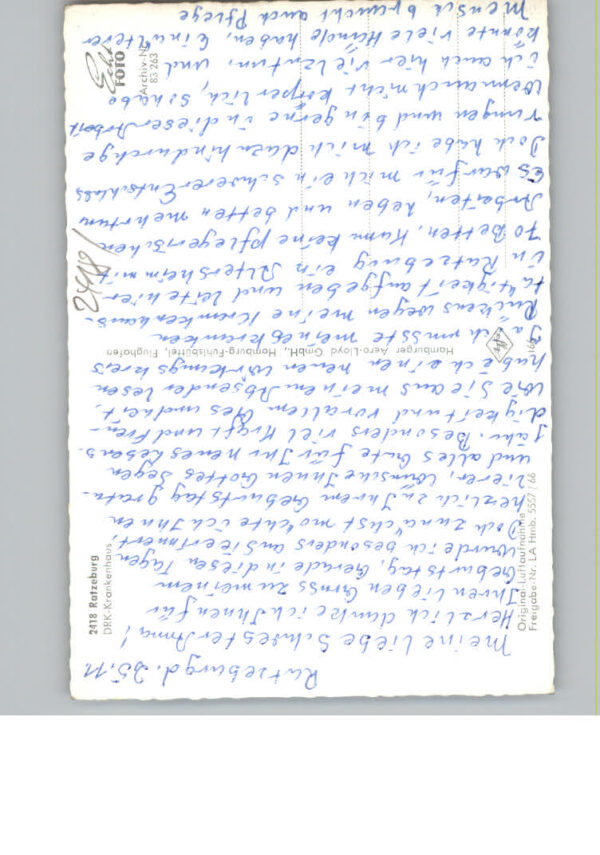 Ratzeburg d. 25.11.
Meine liebe Schwester Anna!
Herzlich danke ich Ihnen für
Ihren lieben Gruss zu meinem
Geburtstag, Gerade in diesen Tagen
wurde ich besonders an Sie erinnert,
Doch zunächst möchte ich Ihnen
herzlich zu Ihrem Geburtstag gratu-
lieren, wünsche Ihnen Gottes Segen
und alles Gute für Ihr neues Lebens-
jahr. Besonders viel Kraft und Freu-
digkeit und vor allem Gesundheit,
Wie Sie aus meinem Absender lesen
habe ich einen neuen Wirkungskreis
Ja ich musste meines kranken
Rückens wegen meine Krankenhaus-
tätigkeit aufgeben und leite hier
in Ratzeburg ein Altersheim mit
70 Betten, Kann keine pflegerischen
Arbeiten, heben und betten mehr tun
Es war für mich ein schwerer Entschluss
Doch habe ich mich dazu hindurchge
rungen und bin gerne in dieser Arbeit
Wenn auch nicht körperlich, so habe
ich auch hier viel zu tun, und
könnte viele Hände haben, Ein älterer
Mensch braucht auch Pflege
2418 Ratzeburg
DRK-Krankenhaus
Original-Luftaufnahme
Freigabe-Nr. LA Hmb. 5557/66
Hamburger Aero-Lloyd GmbH., Hamburg-Fuhlsbüttel, Flughafen
Echt
FOTO
Archiv-Nr.
83 263
2418/